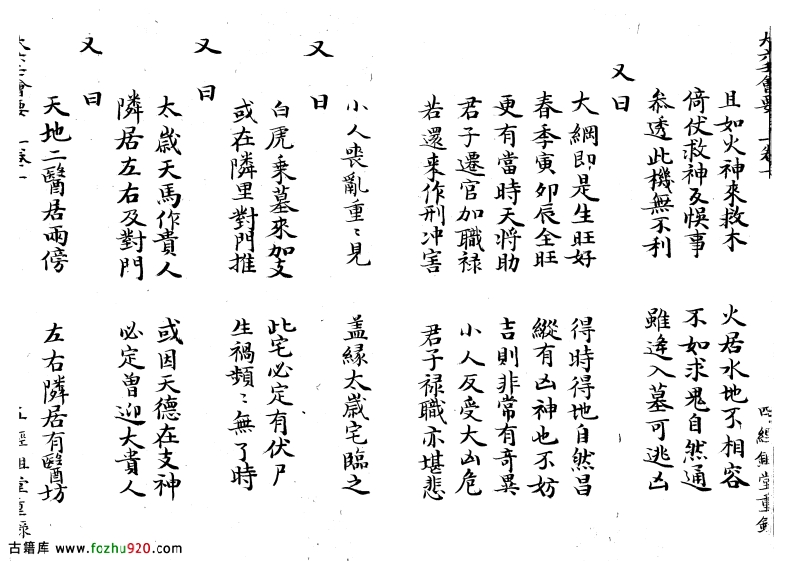 大六壬會要
且如火神來救木　火居水地不相容
倚伏救神反悞事　不如求鬼自然通
叅透此機無不利　雖逄入墓可逃凶
又曰
大綱即是生旺好　得時得地自然昌
春季寅卯辰全旺　縱有凶神也不妨
更有當時天将助　吉則非常有奇異
君子遷官加職禄　小人反受大凶危
若還来作刑冲害　君子禄職亦堪悲
小人喪亂重〻見　盖緣太歲宅臨之
又曰
白虎乘墓來加支　此宅必定有伏尸
或在隣里對門推　生禍頻〻無了時
又曰
太歲天馬作貴人　或因天德在支神
隣居左右及對門　必定曽迎大貴人
又曰
天地二醫居兩傍　左右隣居有醫坊
古籍库 www.fozhu920.com